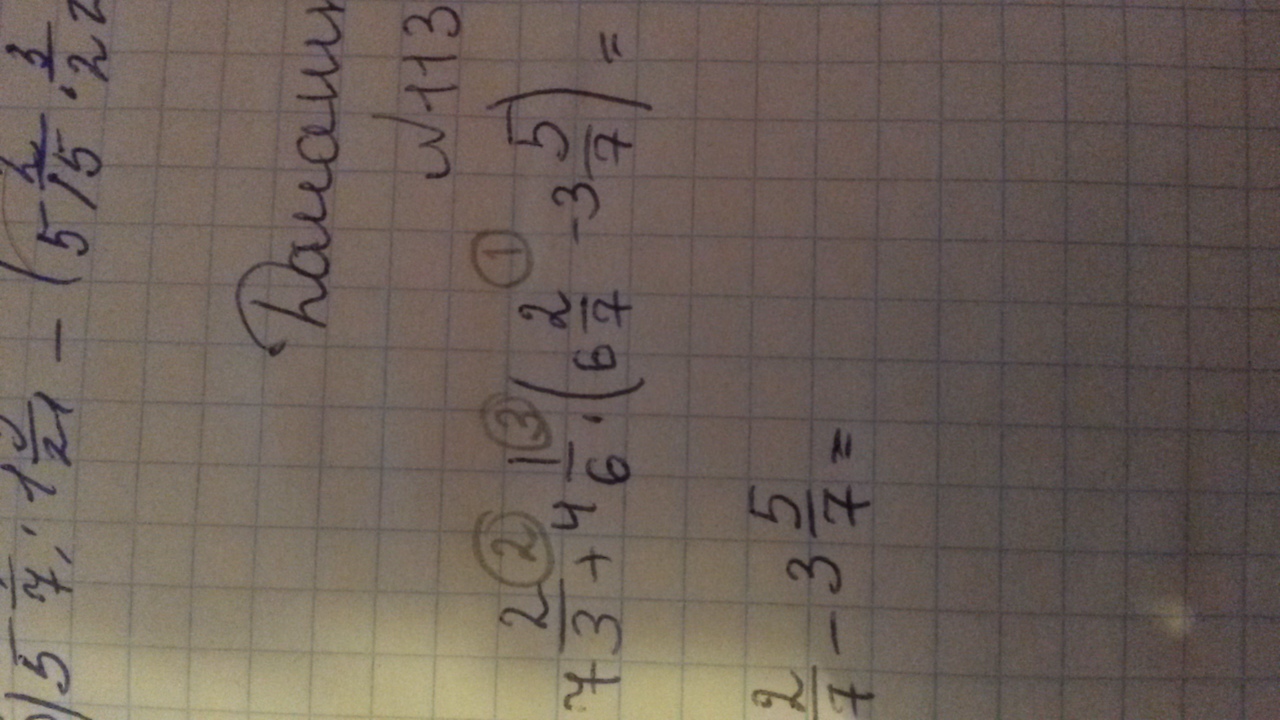 5 1/7 : 1 5/21 - (5 2/15 · 3/2
Домашн
№113
7 2/3 + 4 1/6 · (6 2/7 - 3 5/7) =
② ③ ①
2/7 - 3 5/7 =